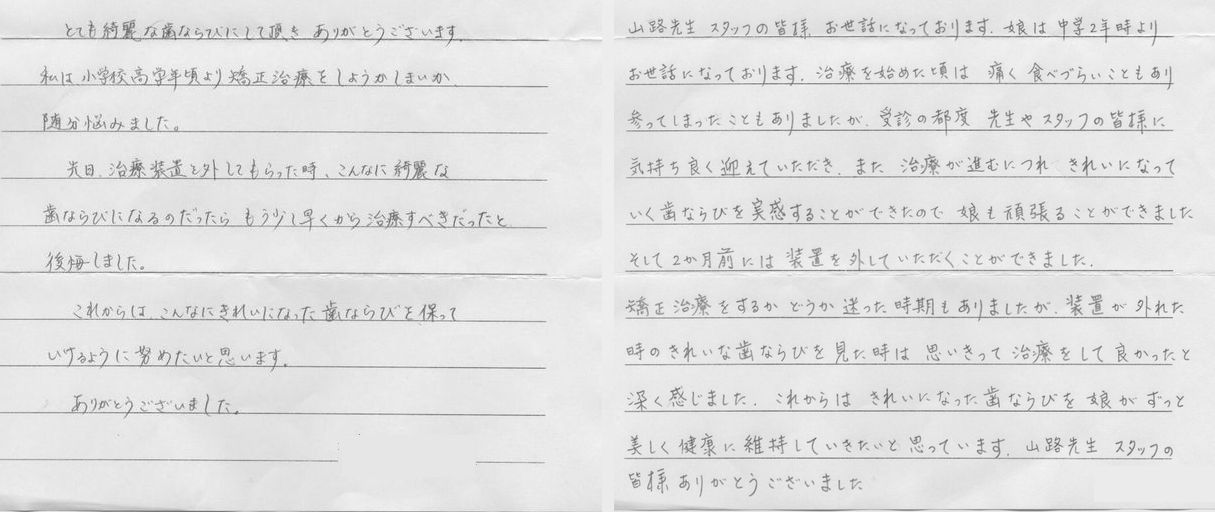 とても綺麗な歯ならびにして頂き ありがとうございます。
私は小学校高学年頃より矯正治療をしようかしまいか、
随分悩みました。
先日、治療装置を外してもらった時、こんなに綺麗な
歯ならびになるのだったら もう少し早くから治療すべきだったと
後悔しました。
これからは、こんなにきれいになった歯ならびを保って
いけるように努めたいと思います。
ありがとうございました。
山路先生 スタッフの皆様 お世話になっております。娘は 中学2年時より
お世話になっております。治療を始めた頃は 痛く 食べづらいこともあり
参ってしまったこともありましたが、受診の都度 先生や スタッフの皆様に
気持ち良く迎えていただき、また 治療が進むにつれ きれいになって
いく歯ならびを実感することができたので 娘も頑張ることができました
そして2か月前には 装置を外していただくことができました。
矯正治療をするか どうか 迷った時期もありましたが、装置が 外れた
時のきれいな歯ならびを見た時は 思いきって治療をして良かったと
深く感じました。これからは きれいになった歯ならびを 娘が ずっと
美しく 健康に 維持していきたいと思っています。山路先生 スタッフの
皆様 ありがとうございました